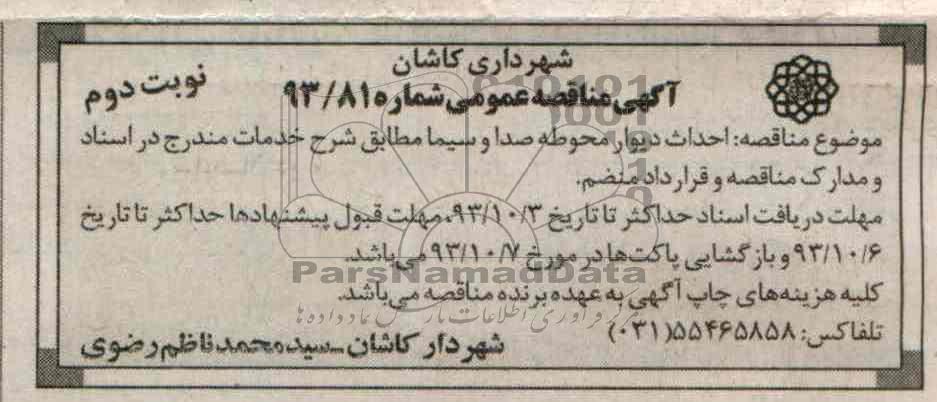 شهرداری کاشان
آگهی مناقصه عمومی شماره ۹۳/۸۱
نوبت دوم
موضوع مناقصه: احداث دیوار محوطه صدا و سیما مطابق شرح خدمات مندرج در اسناد
و مدارک مناقصه و قرارداد منضم.
مهلت دریافت اسناد حداکثر تا تاریخ ۹۳/۱۰/۳، مهلت قبول پیشنهادها حداکثر تا تاریخ
۹۳/۱۰/۶ و بازگشایی پاکت‌ها در مورخ ۹۳/۱۰/۷ می‌باشد.
ParsNamadData
کلیه هزینه‌های چاپ آگهی به عهده برنده مناقصه می‌باشد.
تلفاکس: ۵۵۴۶۵۸۵۸(۰۳۱)
شهردار کاشان ـ سیدمحمد ناظم رضوی